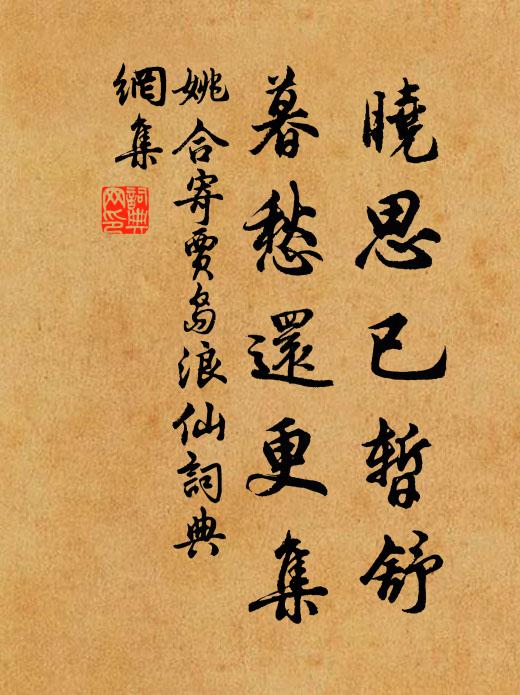 曉思已暫舒
暮愁還更集
姚合寄賈島浪仙詞典
網集
詞典
网印